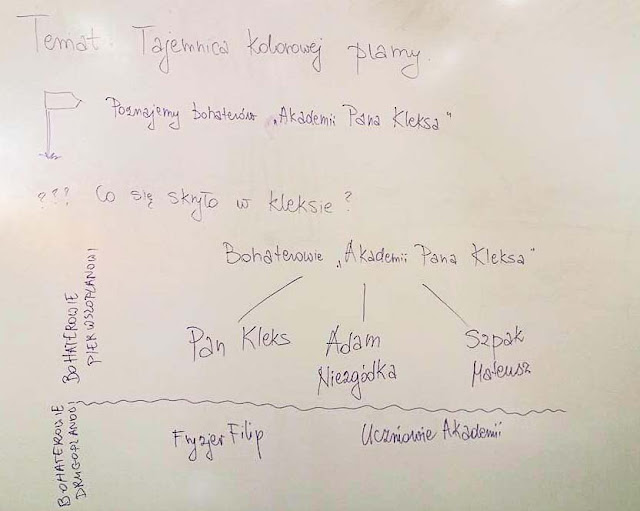 Temat: Tajemnica kolorowej plamy.
Poznajemy bohaterów „Akademii Pana Kleksa"
??? Co się skryło w kleksie?
Bohaterowie „Akademii Pana Kleksa"
BOHATEROWIE
PIERWSZOPLANOWI
Pan Kleks
Adam
Niezgódka
Szpak
Mateusz
BOHATEROWIE
DRUGOPLANOWI
Fryzjer Filip
Uczniowie Akademii